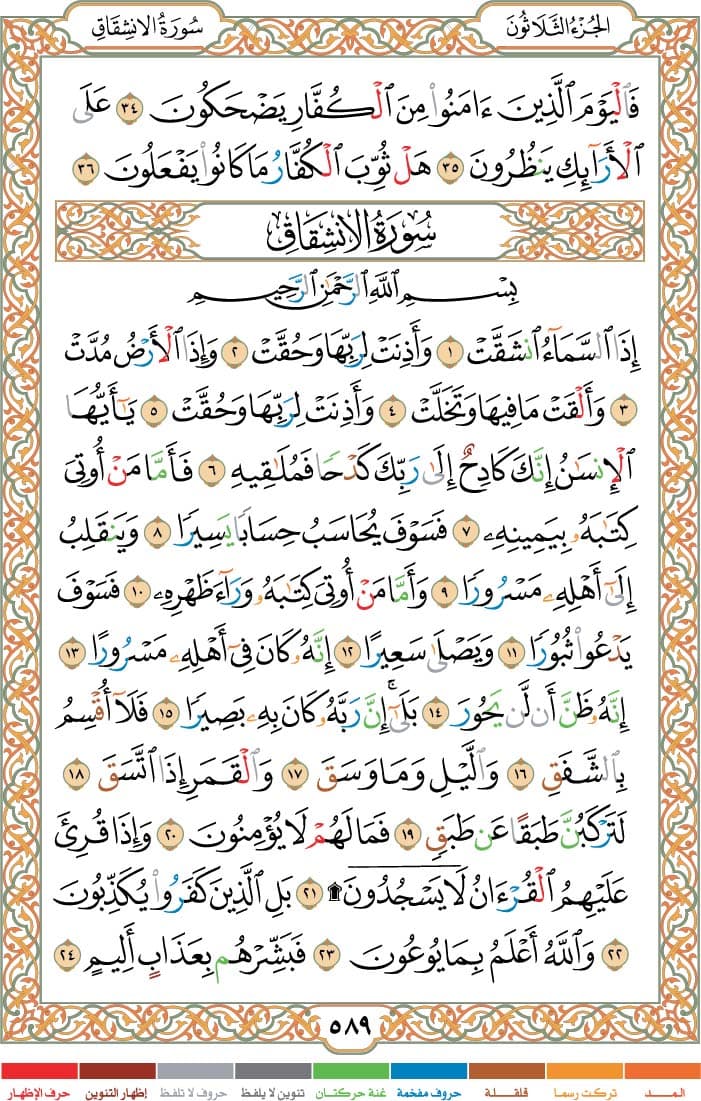 الجزء الثلاثون
سورة الانشقاق
فَٱلْيَوْمَ ٱلَّذِينَ ءَامَنُوا۟ مِنَ ٱلْكُفَّارِ يَضْحَكُونَ ٣٤ عَلَى
ٱلْأَرَآئِكِ يَنظُرُونَ ٣٥ هَلْ ثُوِّبَ ٱلْكُفَّارُ مَا كَانُوا۟ يَفْعَلُونَ ٣٦
سُورَةُ الانْشِقَاقِ
بِسْمِ ٱللَّهِ ٱلرَّحْمَٰنِ ٱلرَّحِيمِ
إِذَا ٱلسَّمَآءُ ٱنشَقَّتْ ١ وَأَذِنَتْ لِرَبِّهَا وَحُقَّتْ ٢ وَإِذَا ٱلْأَرْضُ مُدَّتْ
٣ وَأَلْقَتْ مَا فِيهَا وَتَخَلَّتْ ٤ وَأَذِنَتْ لِرَبِّهَا وَحُقَّتْ ٥ يَٰٓأَيُّهَا
ٱلْإِنسَٰنُ إِنَّكَ كَادِحٌ إِلَىٰ رَبِّكَ كَدْحًا فَمُلَٰقِيهِ ٦ فَأَمَّا مَنْ أُوتِىَ
كِتَٰبَهُۥ بِيَمِينِهِۦ ٧ فَسَوْفَ يُحَاسَبُ حِسَابًا يَسِيرًا ٨ وَيَنقَلِبُ
إِلَىٰٓ أَهْلِهِۦ مَسْرُورًا ٩ وَأَمَّا مَنْ أُوتِىَ كِتَٰبَهُۥ وَرَآءَ ظَهْرِهِۦ ١٠ فَسَوْفَ
يَدْعُوا۟ ثُبُورًا ١١ وَيَصْلَىٰ سَعِيرًا ١٢ إِنَّهُۥ كَانَ فِىٓ أَهْلِهِۦ مَسْرُورًا ١٣
إِنَّهُۥ ظَنَّ أَن لَّن يَحُورَ ١٤ بَلَىٰٓ ۚ إِنَّ رَبَّهُۥ كَانَ بِهِۦ بَصِيرًا ١٥ فَلَآ أُقْسِمُ
بِٱلشَّفَقِ ١٦ وَٱلَّيْلِ وَمَا وَسَقَ ١٧ وَٱلْقَمَرِ إِذَا ٱتَّسَقَ ١٨
لَتَرْكَبُنَّ طَبَقًا عَن طَبَقٍ ١٩ فَمَا لَهُمْ لَا يُؤْمِنُونَ ٢٠ وَإِذَا قُرِئَ
عَلَيْهِمُ ٱلْقُرْءَانُ لَا يَسْجُدُونَ ۩ ٢١ بَلِ ٱلَّذِينَ كَفَرُوا۟ يُكَذِّبُونَ
٢٢ وَٱللَّهُ أَعْلَمُ بِمَا يُوعُونَ ٢٣ فَبَشِّرْهُم بِعَذَابٍ أَلِيمٍ ٢٤
٥٨٩
المـــد تركت رسما قلقـلة حروف مفخمة غنة حركتان تنوين لا يلفظ حروف لا تلفظ إظهار التنوين حرف الإظهار